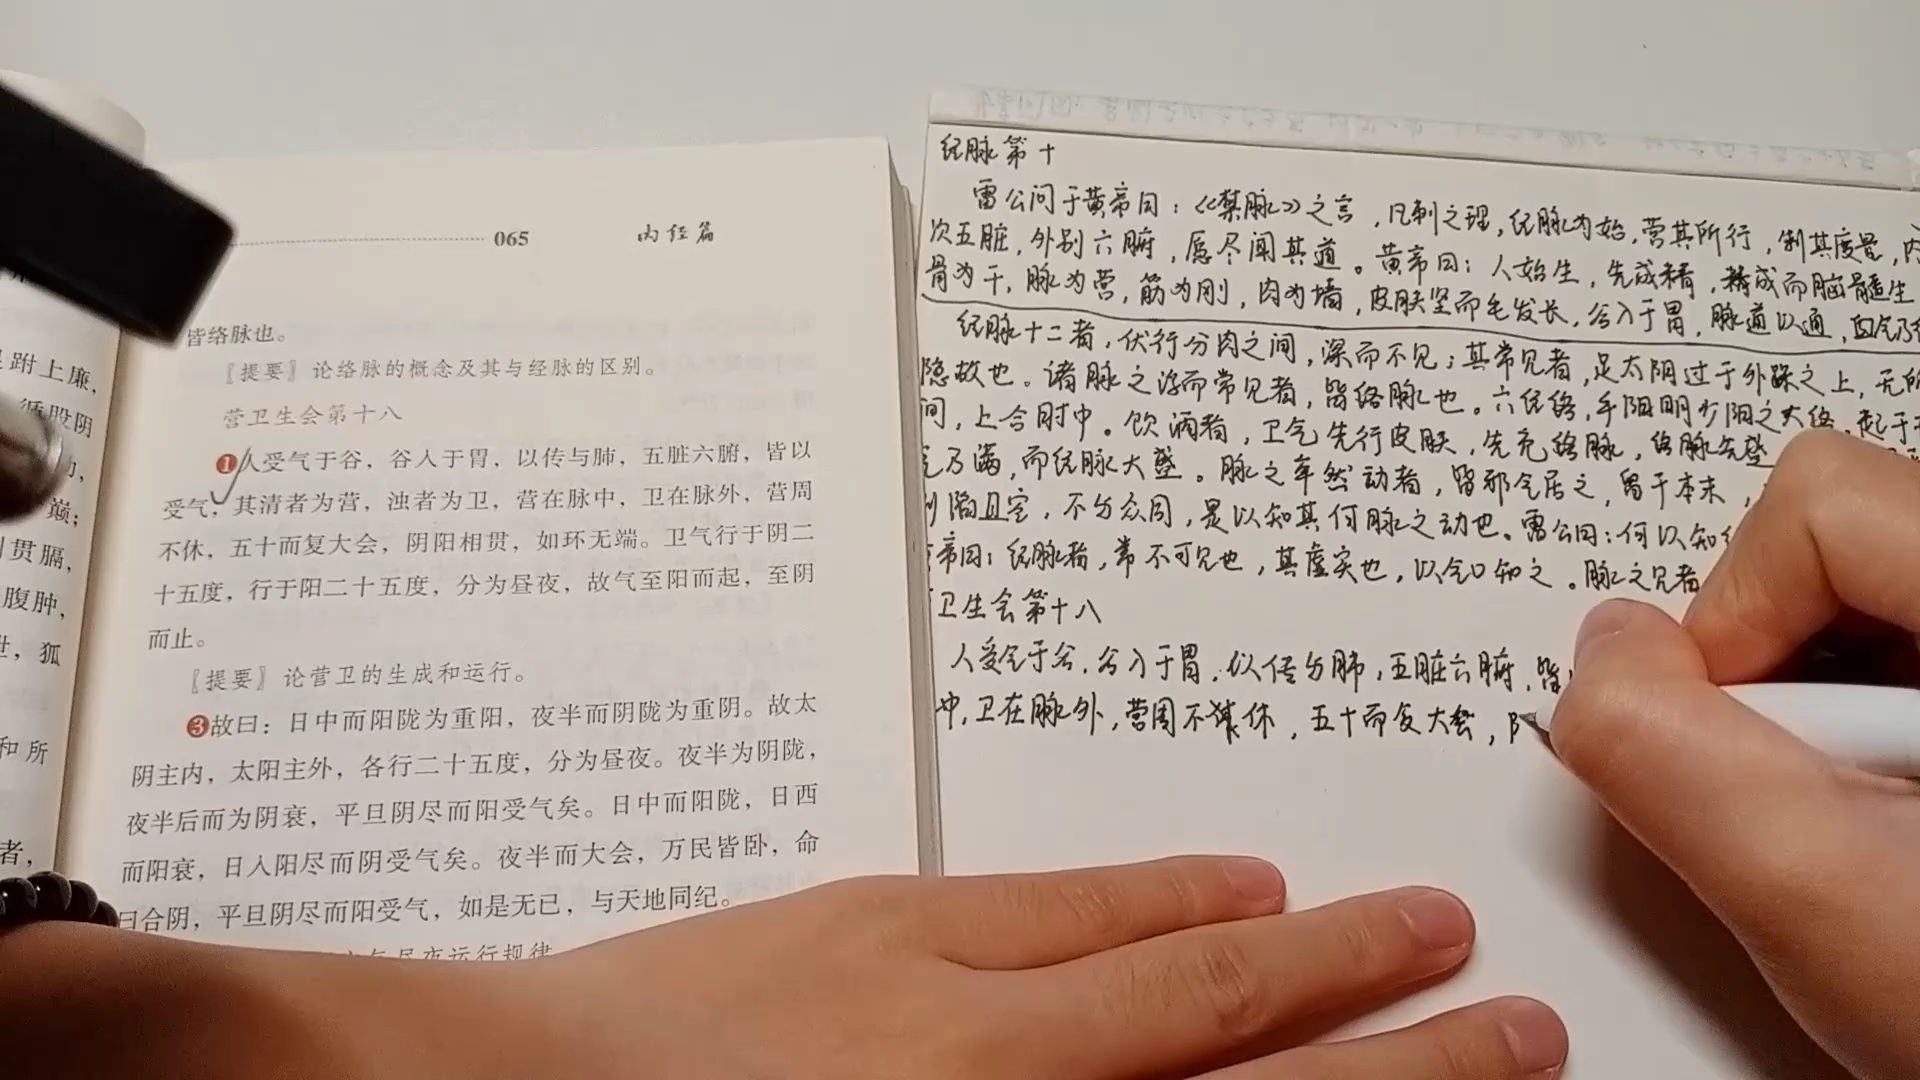 跗上廉,
循股阴
巅;
贯膈,
腹肿,
狐
和所
者,
065 内经篇
皆络脉也。
『提要』论络脉的概念及其与经脉的区别。
营卫生会第十八
❶人受气于谷，谷入于胃，以传与肺，五脏六腑，皆以
受气，其清者为营，浊者为卫，营在脉中，卫在脉外，营周
不休，五十而复大会，阴阳相贯，如环无端。卫气行于阴二
十五度，行于阳二十五度，分为昼夜，故气至阳而起，至阴
而止。
『提要』论营卫的生成和运行。
❸故曰：日中而阳陇为重阳，夜半而阴陇为重阴。故太
阴主内，太阳主外，各行二十五度，分为昼夜。夜半为阴陇，
夜半后而为阴衰，平旦阴尽而阳受气矣。日中而阳陇，日西
而阳衰，日入阳尽而阴受气矣。夜半而大会，万民皆卧，命
曰合阴，平旦阴尽而阳受气，如是无已，与天地同纪。
昼夜运行规律
经脉第十
雷公问于黄帝曰：《禁脉》之言，凡刺之理，经脉为始，营其所行，制其度量，内
次五脏，外别六腑，愿尽闻其道。黄帝曰：人始生，先成精，精成而脑髓生
骨为干，脉为营，筋为刚，肉为墙，皮肤坚而毛发长，谷入于胃，脉道以通，血气乃
经脉十二者，伏行分肉之间，深而不见；其常见者，足太阴过于外踝之上，无所
隐故也。诸脉之浮而常见者，皆络脉也。六经络，手阳明少阳之大络，起于
间，上合肘中。饮酒者，卫气先行皮肤，先充络脉，络脉先盛
气乃满，而经脉大盛。脉之卒然动者，皆邪气居之，留于本末，
则陷且空，不与众同，是以知其何脉之动也。雷公曰：何以知
帝曰：经脉者，常不可见也，其虚实也，以气口知之。脉之见者
卫生会第十八
人受气于谷，谷入于胃，以传与肺，五脏六腑，皆
中，卫在脉外，营周不休，五十而复大会，